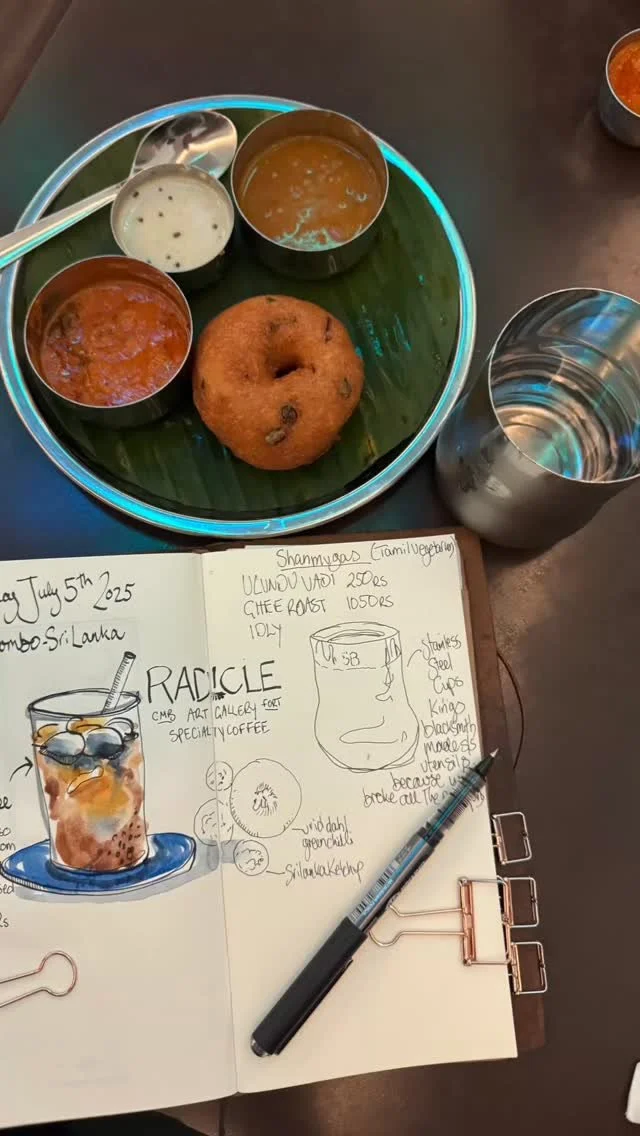 July 5th 2025
ombo-Sri Lanka
RADICLE
CMB ART GALLERY FORT
SPECIALTY COFFEE
Shanmugas (Tamil Vegetarian)
ULUNDU VADI 250RS
GHEE ROAST 1050RS
IDLY
SB
Stainless
Steel
Cups
Kings
blacksmith
made SS
utensils
because
broke all The
urid dahl
green chilli
Sri Lanka Ketchup